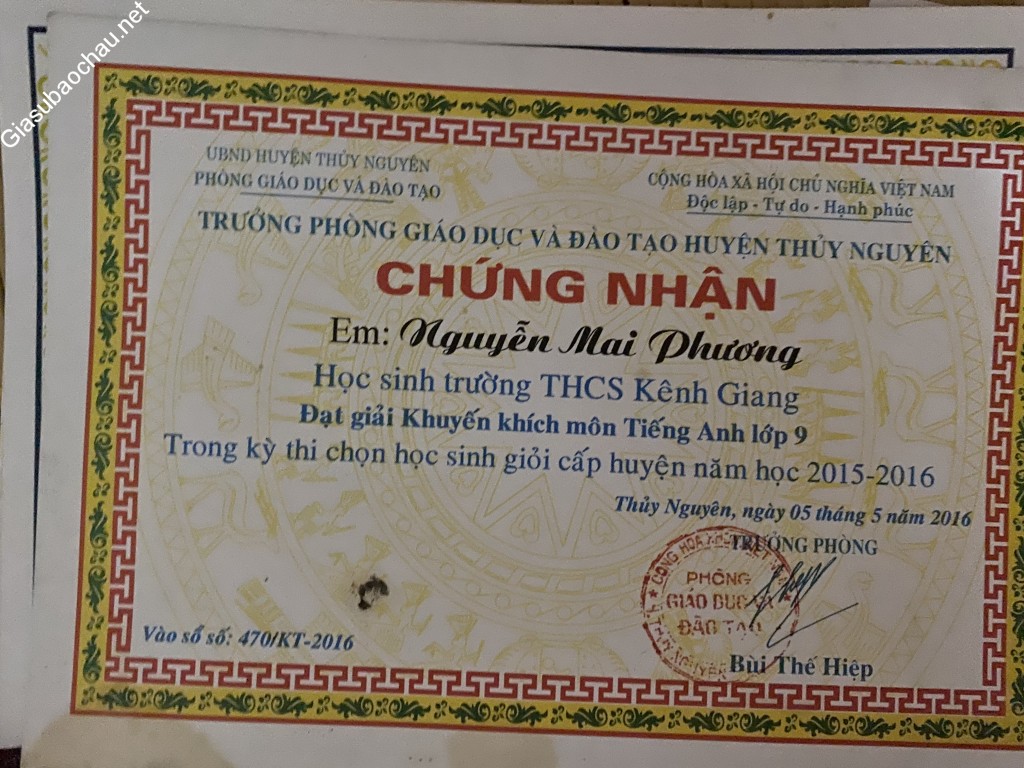 Giasubaochau.net
UBND HUYỆN THỦY NGUYÊN
PHÒNG GIÁO DỤC VÀ ĐÀO TẠO
CỘNG HÒA XÃ HỘI CHỦ NGHĨA VIỆT NAM
Độc lập - Tự do - Hạnh phúc
TRƯỞNG PHÒNG GIÁO DỤC VÀ ĐÀO TẠO HUYỆN THỦY NGUYÊN
CHỨNG NHẬN
Em: Nguyễn Mai Phương
Học sinh trường THCS Kênh Giang
Đạt giải Khuyến khích môn Tiếng Anh lớp 9
Trong kỳ thi chọn học sinh giỏi cấp huyện năm học 2015-2016
Thủy Nguyên, ngày 05 tháng 5 năm 2016
TRƯỞNG PHÒNG
PHÒNG
GIÁO DỤC VÀ
ĐÀO TẠO
Bùi Thế Hiệp
Vào sổ số: 470/KT-2016